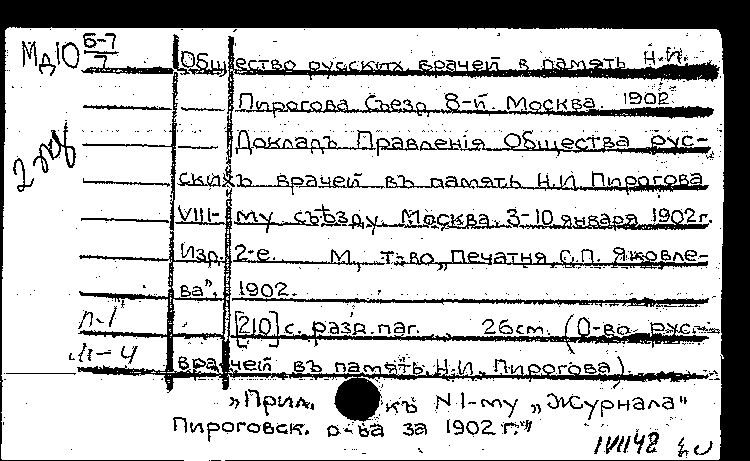 Мд10 Б-7/7
Общество русских врачей в память Н.И.
Пирогова. Съезд 8-й. Москва. 1902
Докладъ Правленія Общества рус-
скихъ врачей въ память Н.И Пирогова
VIII-му съѣзду. Москва. 3-10 января 1902г.
Изд. 2-е. М., т-во „Печатня С.П. Яковле-
ва", 1902.
[210] с. разд. паг. 26см. (О-во русск.
врачей въ память Н.И. Пирогова)
„Прил. къ N 1-му „Журнала"
Пироговск. о-ва за 1902 г."